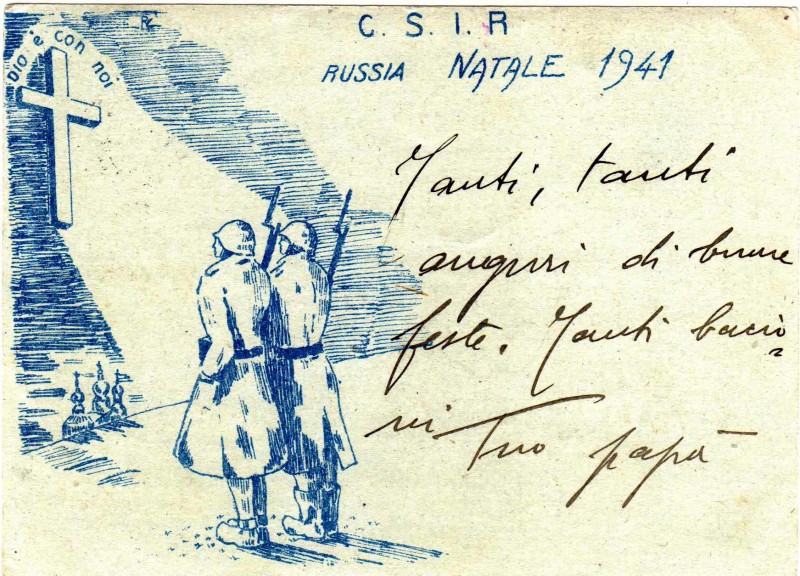 Dio è con noi
C. S. I. R
RUSSIA NATALE 1941
Tanti, tanti
auguri di buone
feste. Tanti bacio=
ni Tuo papà